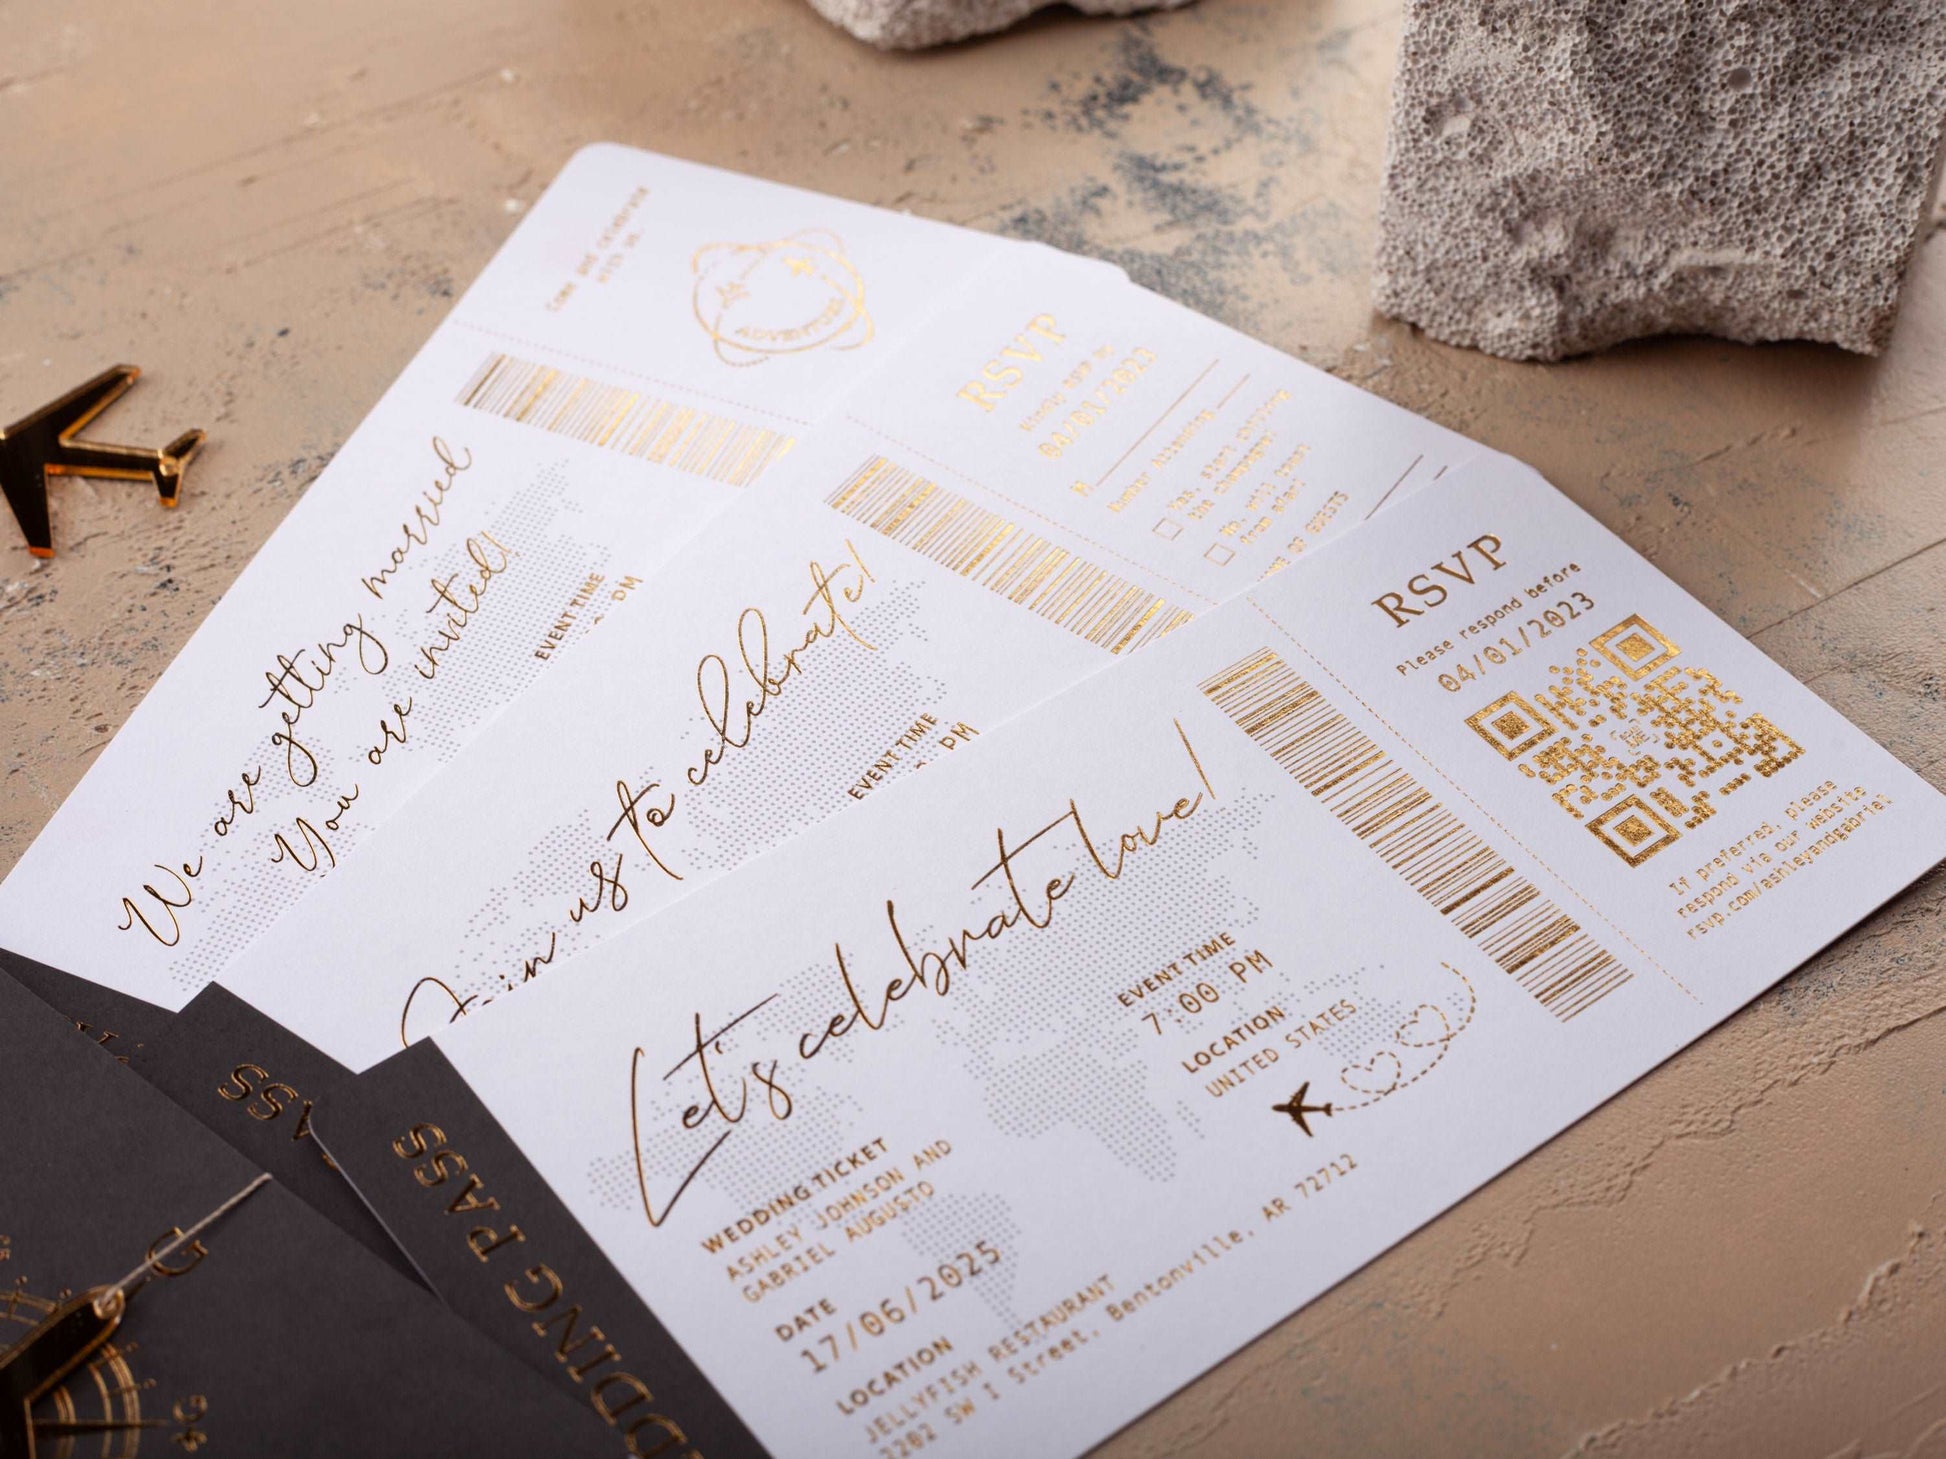 Come and celebrate
with us
ADVENTURE
We are getting married
You are invited!
EVENT TIME
PM
RSVP
04/01/2023
M
Number Attending
Yes, start chilling
the champagne!
No, will toast
from afar!
OF GUESTS
Join us to celebrate!
EVENT TIME
PM
RSVP
Please respond before
04/01/2023
If preferred, please
respond via our website
rsvp.com/ashleyandgabriel
Let's celebrate love!
EVENT TIME
7:00 PM
LOCATION
UNITED STATES
WEDDING TICKET
ASHLEY JOHNSON AND
GABRIEL AUGUSTO
DATE
17/06/2025
LOCATION
JELLYFISH RESTAURANT
7202 SW I Street, Bentonville, AR 72712
SS
DDING PASS
G